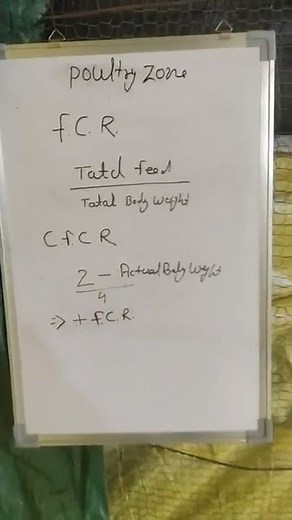 Poultry Zone
f.C.R.
Total feed
Total Body Weight
C.f.C R
2 - Actual Body Weght
4
⇒ + f.C.R.